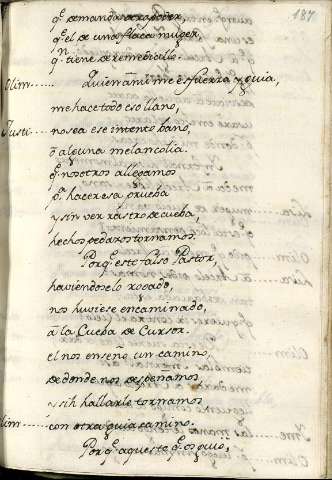 187
q.^e demanda
q.^e el de una flaca muger,
q.^n tiene de remediallo
Olim...... Quien a mi me esfuerza y guia,
me hace todo eso llano,
Justi.... no sea ese intento bano,
o alguna melancolia.
q.^e nosotros allegamos
p.^a hacer esa prueba
y sin ver rastro de cueba,
hechos pedazos tornamos.
Porq.^e este falso Pastor,
haviendoselo rogado,
nos huviese encaminado,
a la Cueba de Cursor.
el nos enseño un camino,
de donde nos despeñamos
y sin hallarle tornamos
Olim...... con otra guia camino.
Porq.^e aqueste q.^e os guio,